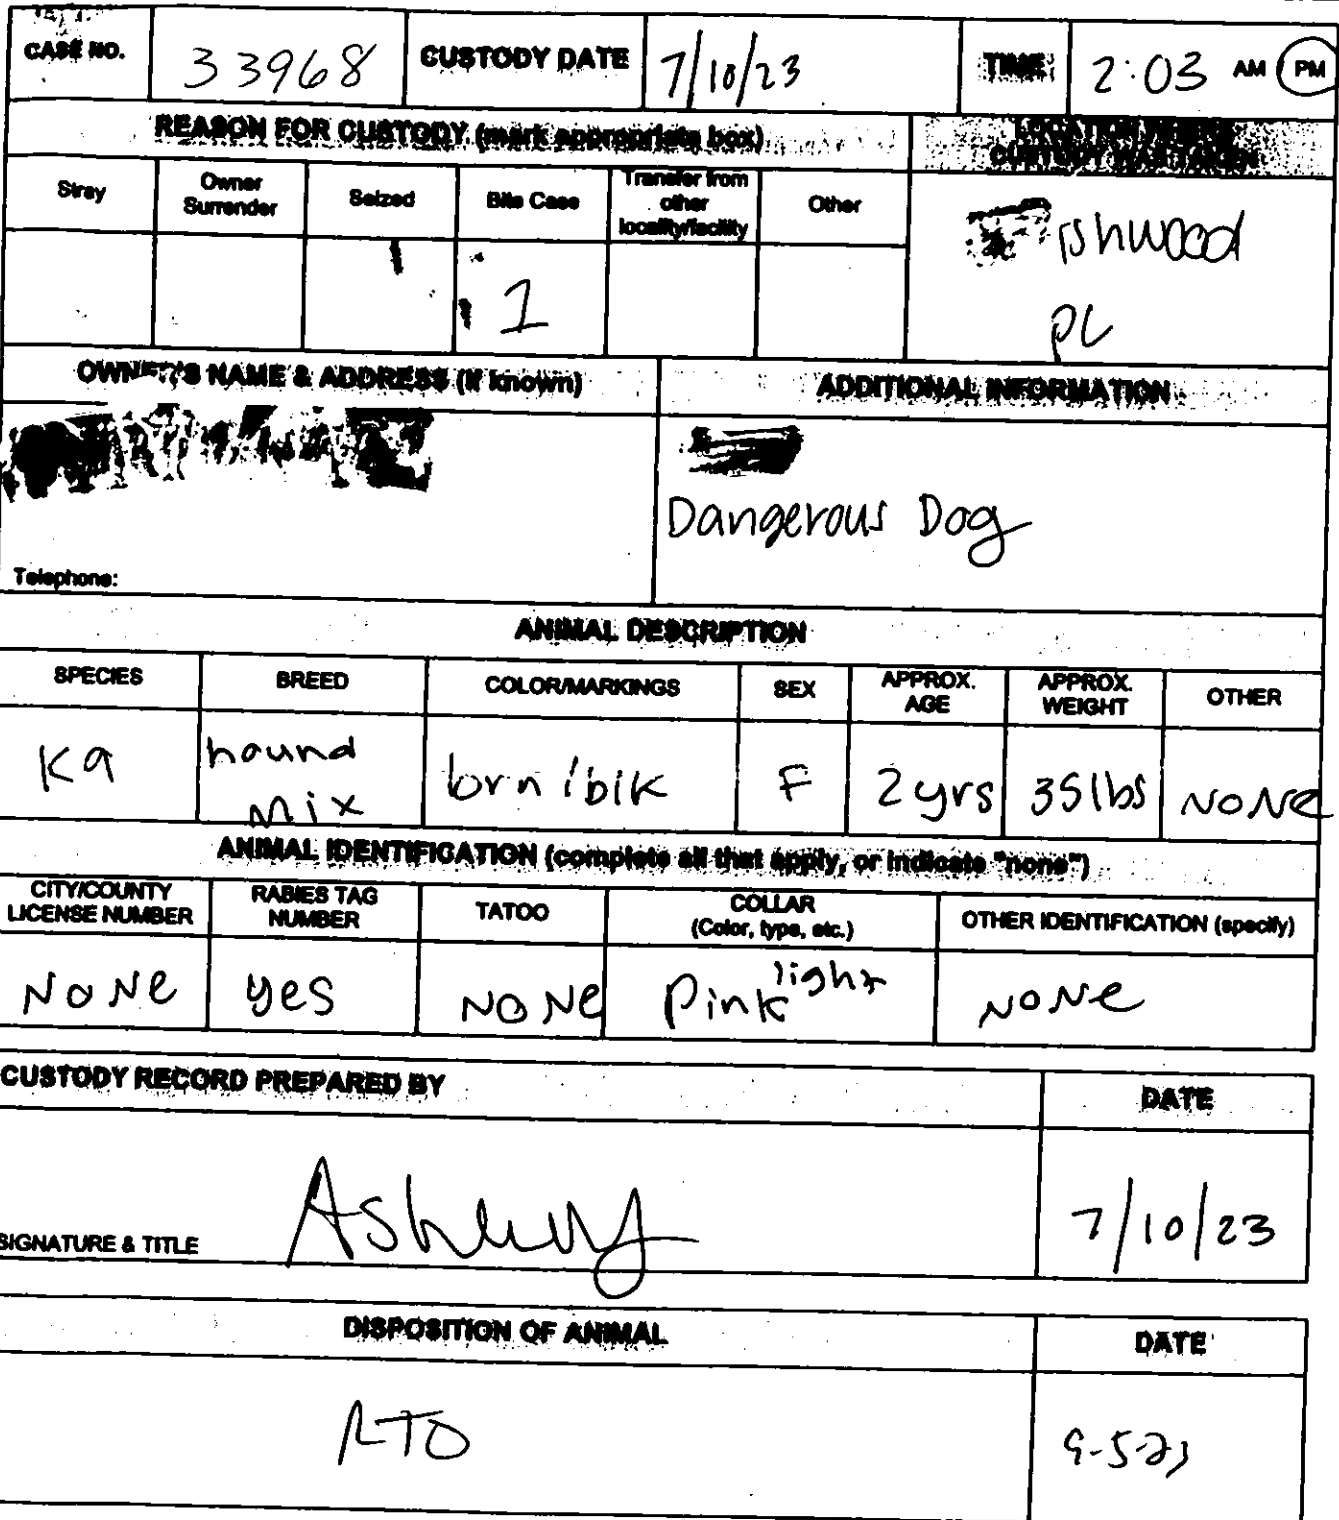 CASE NO. 33968 CUSTODY DATE 7/10/23 TIME 2:03 AM PM
REASON FOR CUSTODY (mark appropriate box) LOCATION WHERE CUSTODY WAS TAKEN
Stray Owner Surrender Seized Bite Case Transfer from other locality/facility Other
1
shwood
PL
OWNER'S NAME & ADDRESS (if known) ADDITIONAL INFORMATION
Dangerous Dog
Telephone:
ANIMAL DESCRIPTION
SPECIES BREED COLOR/MARKINGS SEX APPROX. AGE APPROX. WEIGHT OTHER
K9 hound mix brn/blk F 2 yrs 35 lbs NONE
ANIMAL IDENTIFICATION (complete all that apply, or indicate "none")
CITY/COUNTY LICENSE NUMBER RABIES TAG NUMBER TATOO COLLAR (Color, type, etc.) OTHER IDENTIFICATION (specify)
NONE yes NONE Pink light NONE
CUSTODY RECORD PREPARED BY DATE
SIGNATURE & TITLE 7/10/23
DISPOSITION OF ANIMAL DATE
RTO 9-5-23